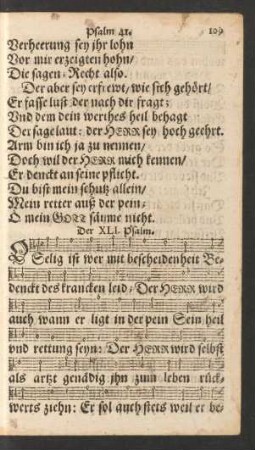 Psalm 41. 109
Verheerung sey jhr lohn
Vor mir erzeigten hohn/
Die sagen: Recht also.
Der aber sey erfrewt/ wie sich gehört/
Er fasse lust der nach dir fragt:
Vnd dem dein werthes heil behagt
Der sage laut: der HERR sey hoch geehrt.
Arm bin ich ja zu nennen/
Doch wil der HERR mich kennen/
Er denckt an seine pflicht.
Du bist mein schutz allein/
Mein retter auß der pein:
O mein GOTT säume nicht.
Der XLI. Psalm.
O Selig ist wer mit bescheidenheit Be-
denckt des krancken leid/ Der HERR wird
auch wann er ligt in der pein Sein heil
und rettung seyn: Der HERR wird selbst
als artzt genädig jhn zum leben rück-
werts ziehn: Er sol auch stets weil er be-